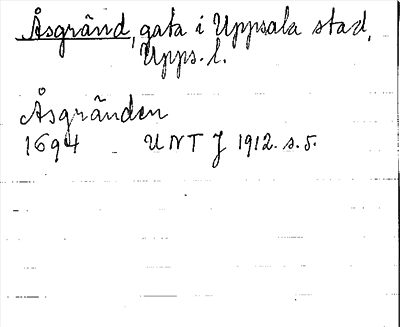 Åsgränd, gata i Uppsala stad,
Upps. l.
Åsgränden
1694 UNT J 1912. s. 5.